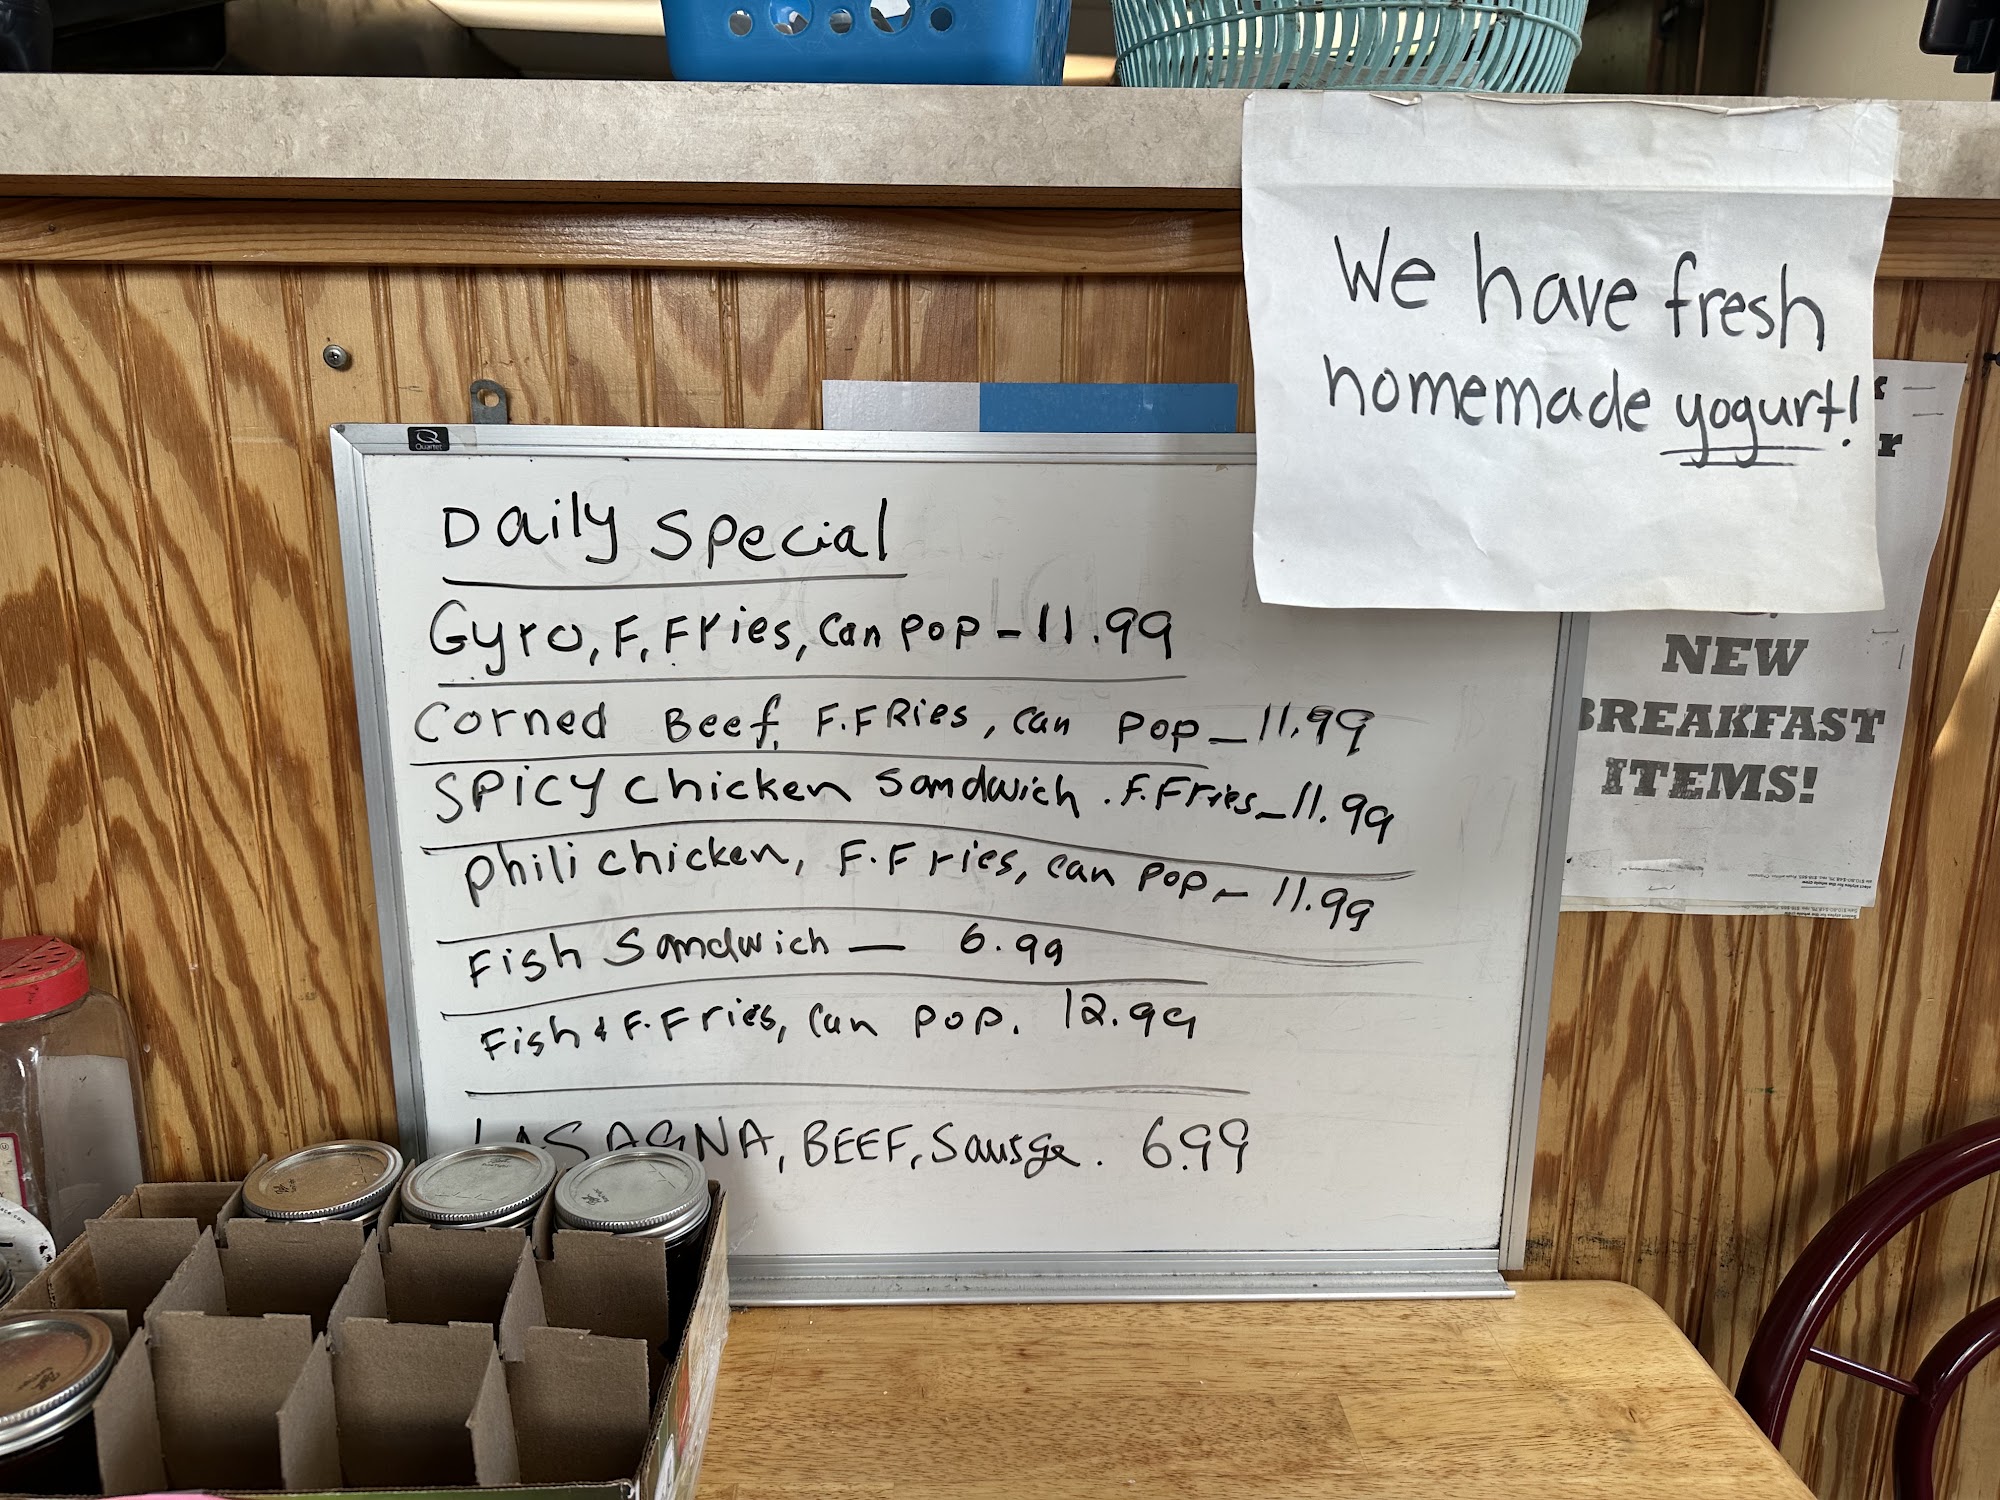 We have fresh
homemade yogurt!
Quartet
Daily Special
Gyro, F. Fries, Can Pop - 11.99
Corned Beef, F. FRies, Can Pop - 11.99
SPICY Chicken Sandwich . F. Fries - 11.99
Phili chicken, F. Fries, Can Pop - 11.99
Fish Sandwich — 6.99
Fish & F. Fries, Can Pop. 12.99
LASAGNA, BEEF, Sausge. 6.99
NEW
BREAKFAST
ITEMS!